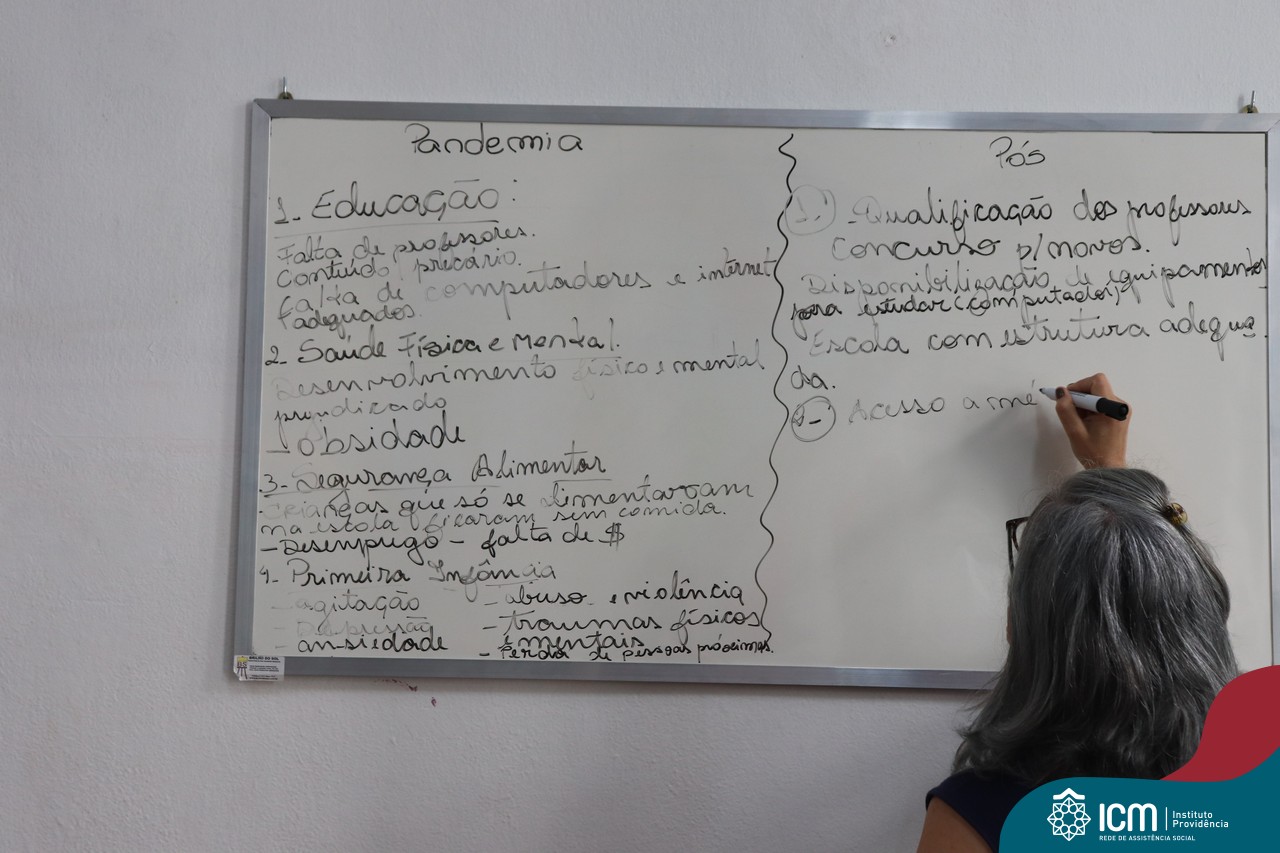 Pandemia
1- Educação:
Falta de professores.
Conteúdo precário.
falta de computadores e internet
adequados.
2- Saúde Física e Mental.
Desenvolvimento físico e mental
prejudicado
- obsidade
3- Segurança Alimentar
- crianças que só se alimentavam
na escola ficaram sem comida.
- Desemprego - falta de $
4- Primeira Infância
- agitação
- Depressão
- ansiedade
- abuso e violência
- traumas físicos
e mentais
- Perda de pessoas próximas.
Pós
1- - Qualificação dos professores
Concurso p/ novos.
Disponibilização de equipamentos
para estudar (computador)
Escola com estrutura adequa
da.
2- Acesso a mé
ICM
Instituto
Providência
REDE DE ASSISTÊNCIA SOCIAL